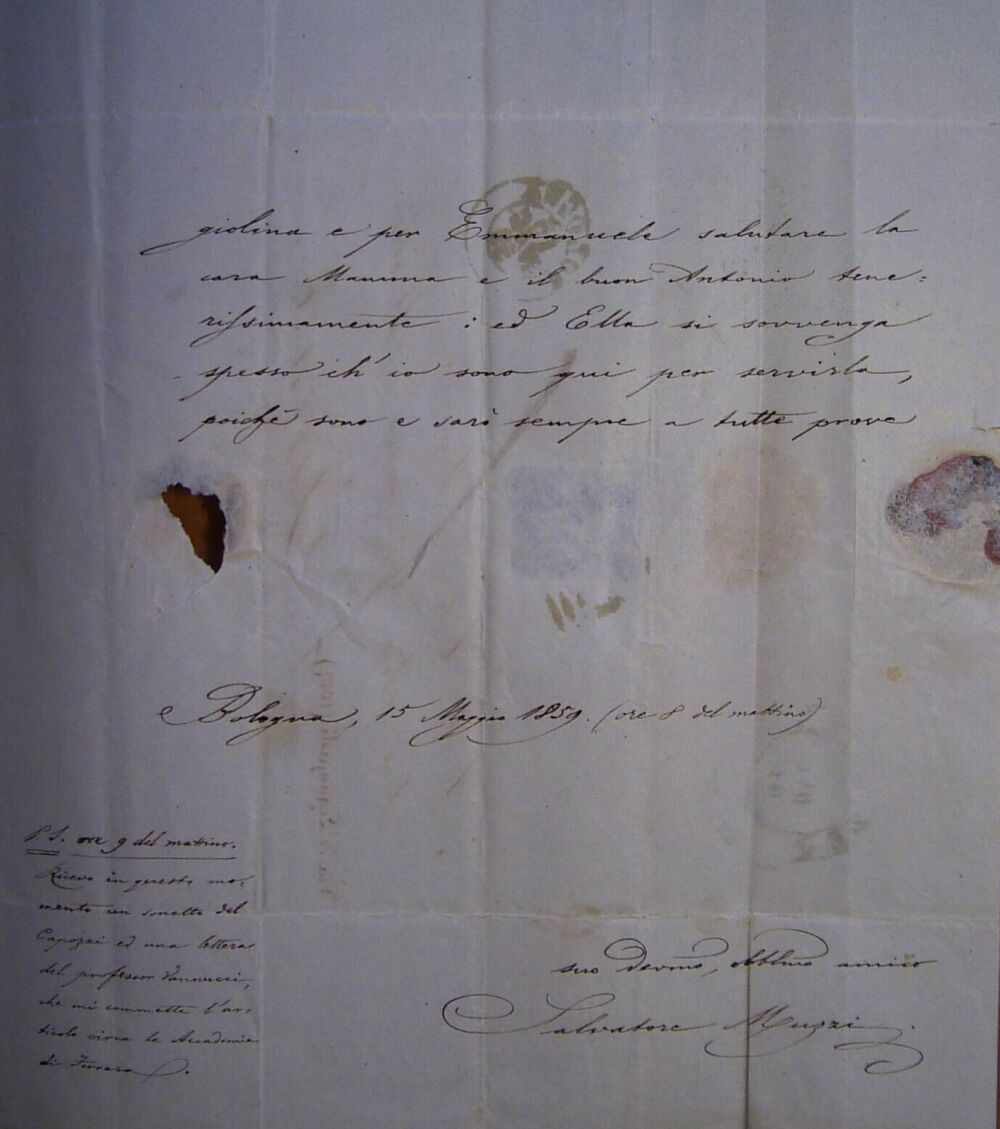 giolina e per Emmanuele salutare la
cara Mamma e il buon Antonio tene=
rissimamente : ed Ella si sovvenga
spesso ch' io sono qui per servirla,
poichè sono e sarò sempre a tutte prove
Bologna, 15 Maggio 1859. (ore 8 del mattino)
P. S. ore 9 del mattino.
Ricevo in questo mo-
mento un sonetto del
Capozzi ed una lettera
del professor Vannucci,
che mi commette l'ar-
ticolo circa la Accademia
di Ferrara.
suo Devmo, Obblmo amico
Salvatore Muzzi.